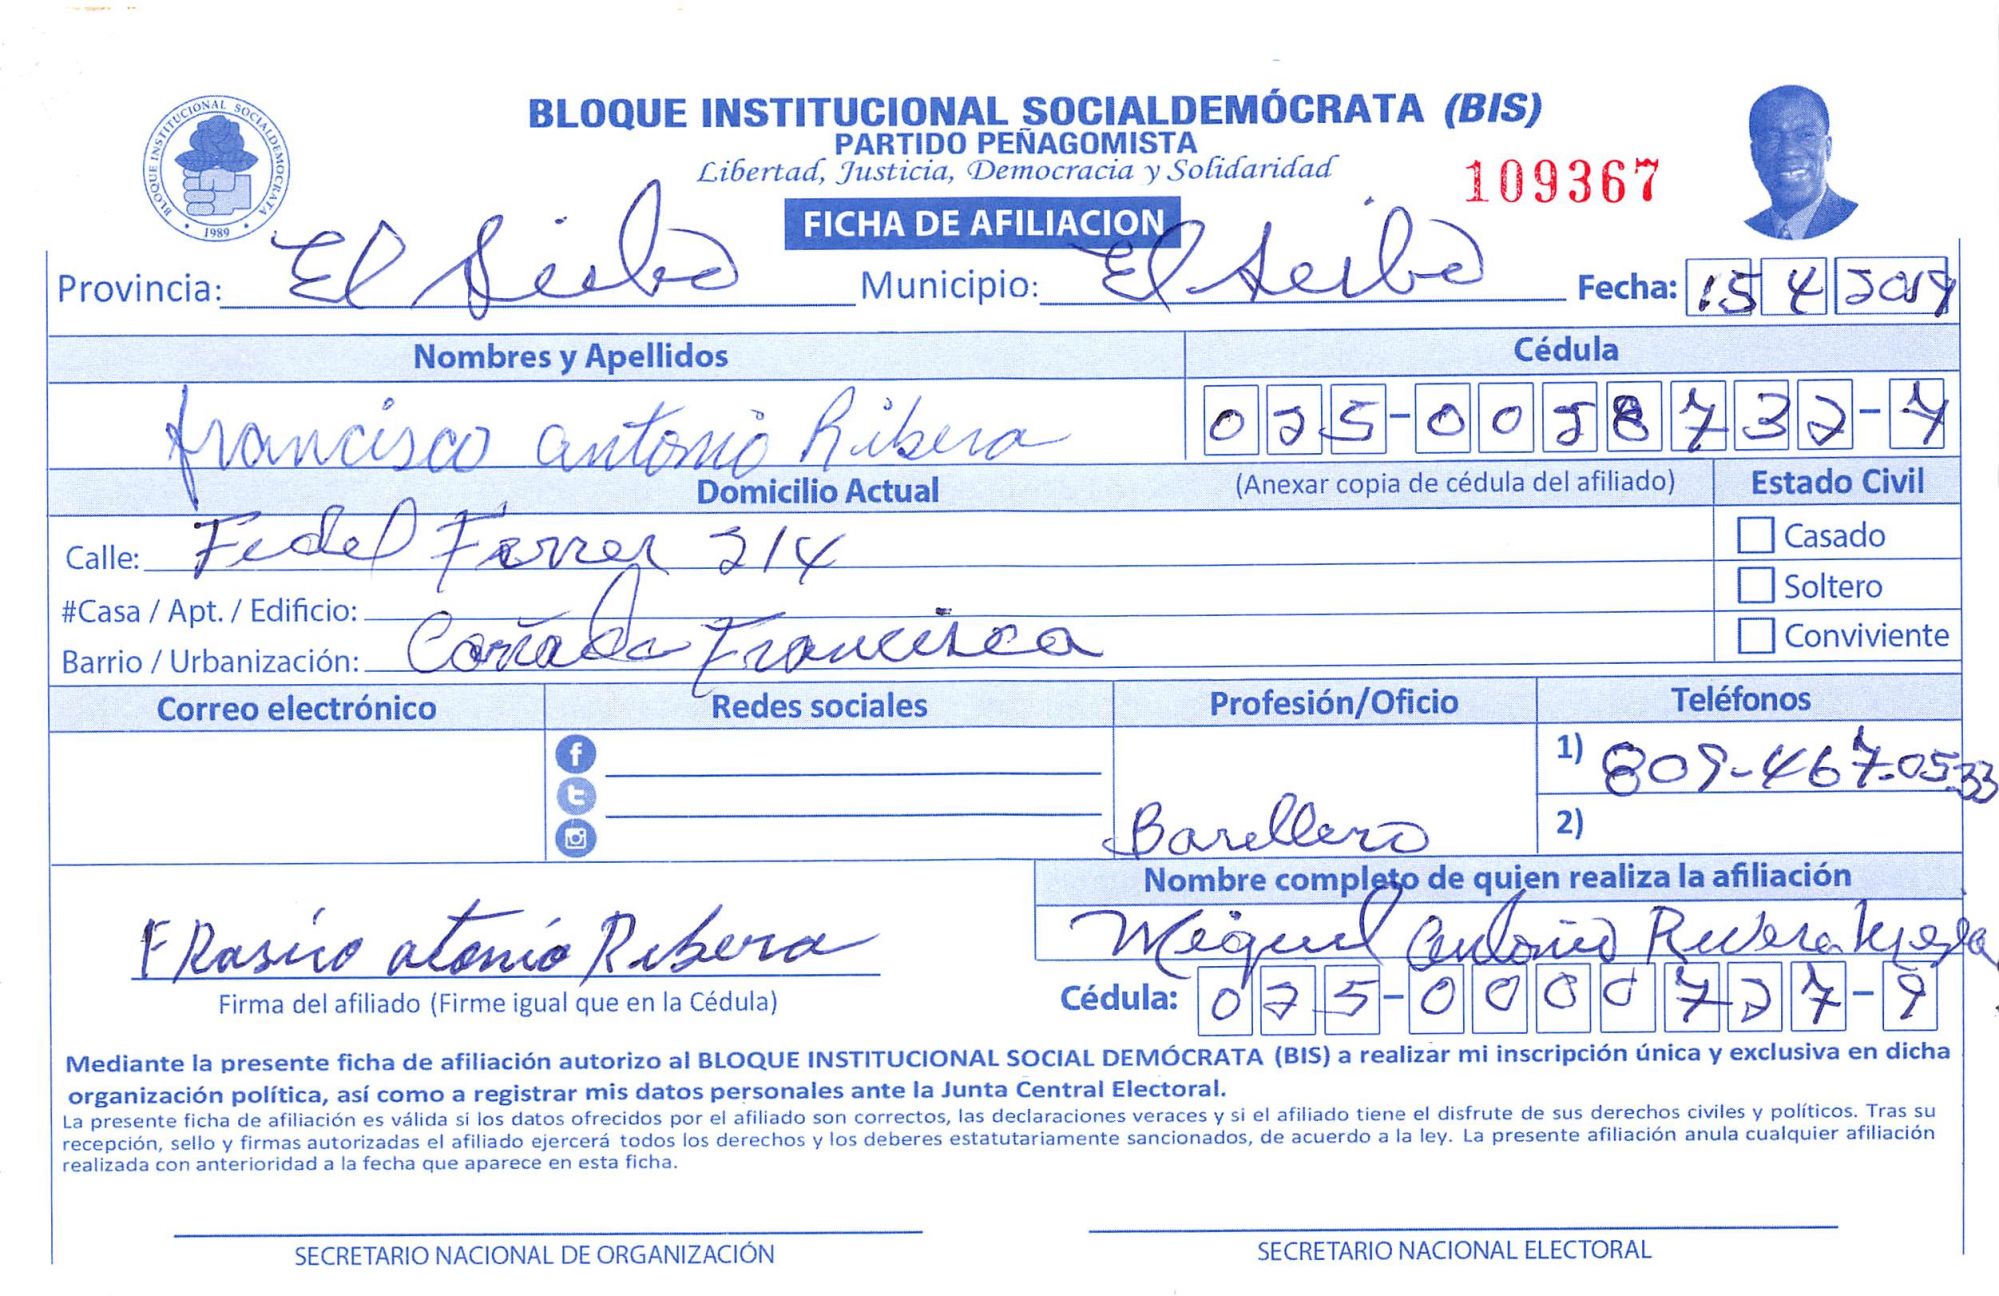 BLOQUE INSTITUCIONAL SOCIALDEMOCRATA
1989
BLOQUE INSTITUCIONAL SOCIALDEMÓCRATA (BIS)
PARTIDO PEÑAGOMISTA
Libertad, Justicia, Democracia y Solidaridad
109367
FICHA DE AFILIACION
Provincia: El Seibo Municipio: El Seibo Fecha: 15 4 2019
Nombres y Apellidos Cédula
francisco antonio Ribera 025-0028732-7
Domicilio Actual (Anexar copia de cédula del afiliado) Estado Civil
Calle: Fedel Ferrer 214 Casado
#Casa / Apt. / Edificio: Soltero
Barrio / Urbanización: Cañada Francisca Conviviente
Correo electrónico Redes sociales Profesión/Oficio Teléfonos
1) 809-467-0533
Barellero 2)
Nombre completo de quien realiza la afiliación
FRasico atonio Ribera Miguel Antonio Rivera
Firma del afiliado (Firme igual que en la Cédula) Cédula: 025-0000727-9
Mediante la presente ficha de afiliación autorizo al BLOQUE INSTITUCIONAL SOCIAL DEMÓCRATA (BIS) a realizar mi inscripción única y exclusiva en dicha
organización política, así como a registrar mis datos personales ante la Junta Central Electoral.
La presente ficha de afiliación es válida si los datos ofrecidos por el afiliado son correctos, las declaraciones veraces y si el afiliado tiene el disfrute de sus derechos civiles y políticos. Tras su
recepción, sello y firmas autorizadas el afiliado ejercerá todos los derechos y los deberes estatutariamente sancionados, de acuerdo a la ley. La presente afiliación anula cualquier afiliación
realizada con anterioridad a la fecha que aparece en esta ficha.
SECRETARIO NACIONAL DE ORGANIZACIÓN SECRETARIO NACIONAL ELECTORAL